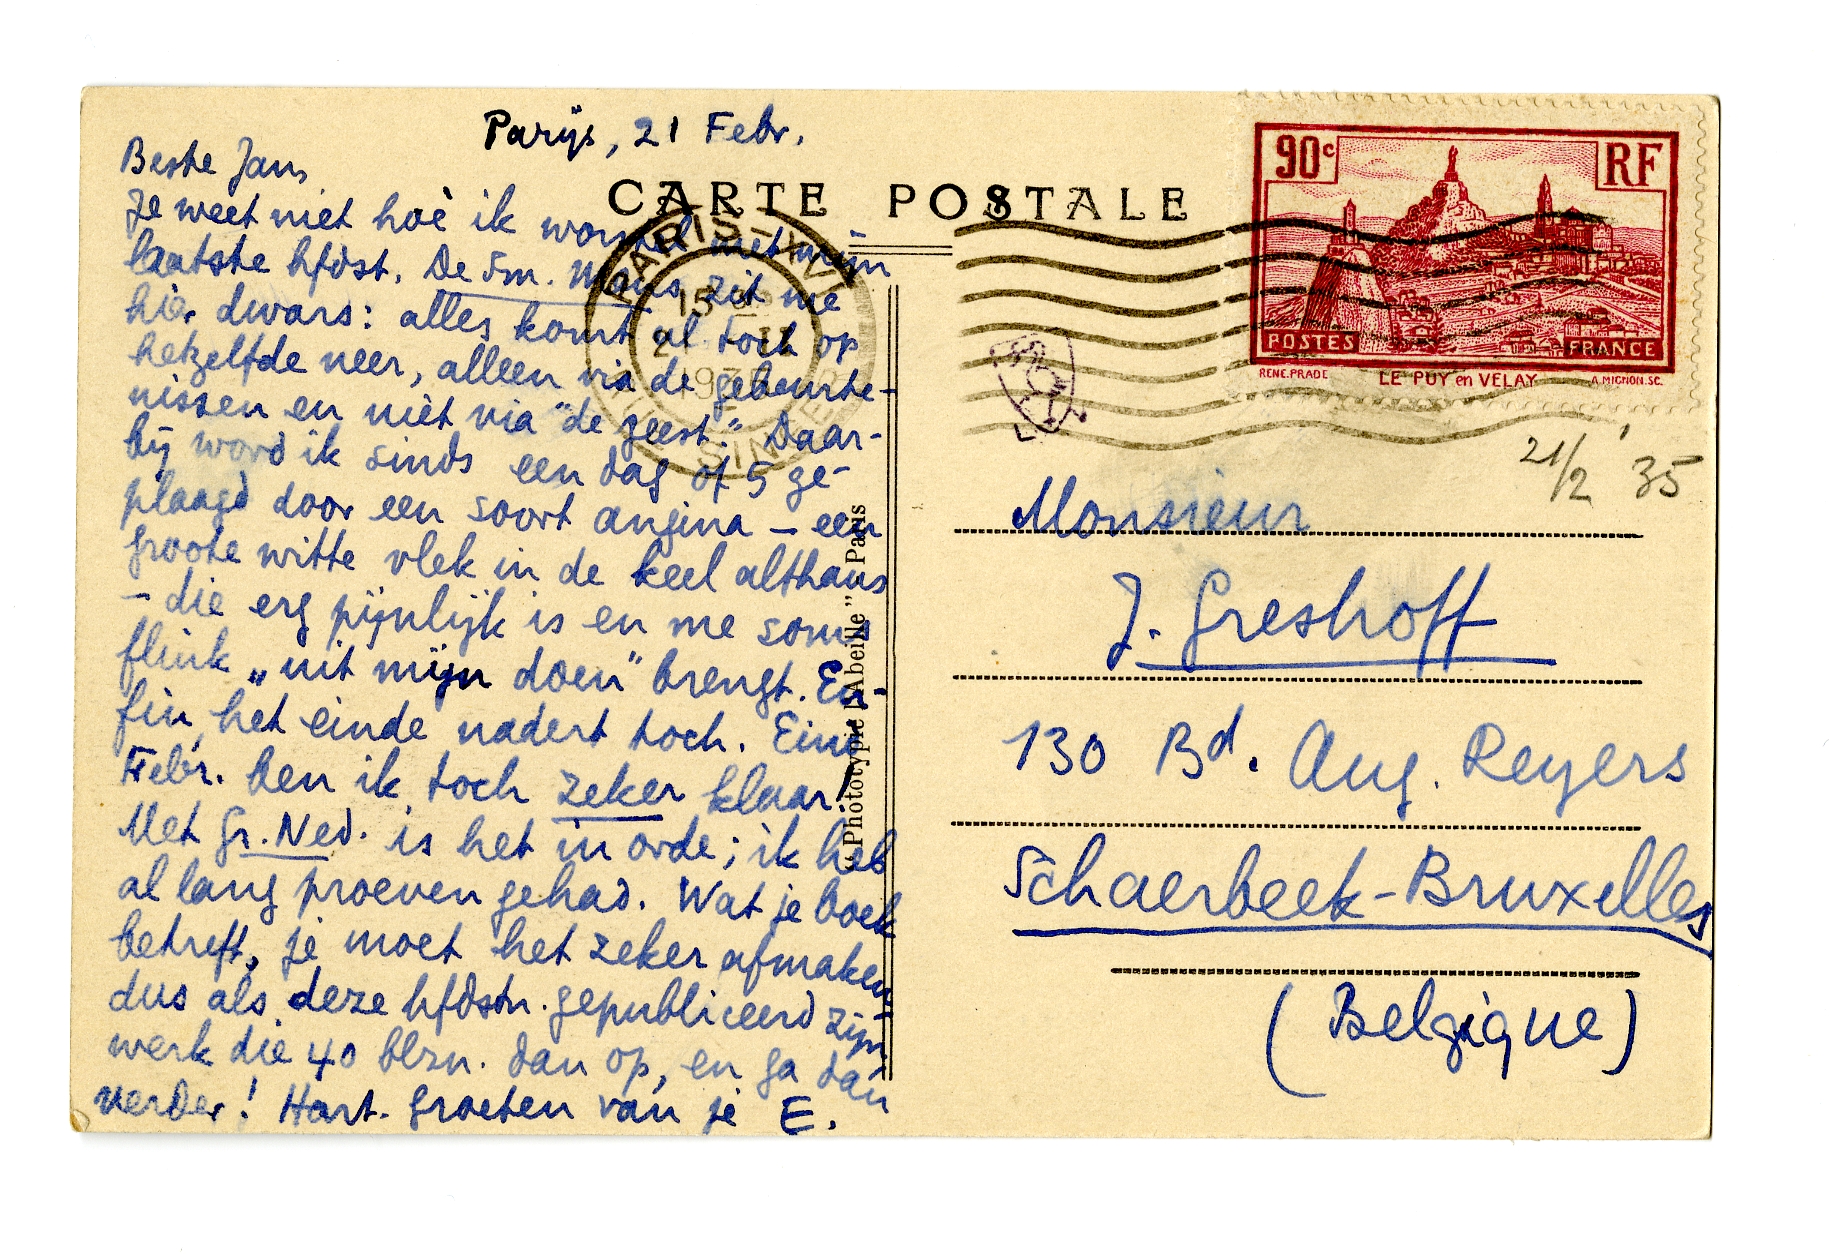 Parijs, 21 Febr.
Beste Jan,
Je weet niet hoè ik worstel met mijn
laatste hfdst. De Sm. Maus zit me
hier dwars: alles komt al toch op
hetzelfde neer, alleen via de gebeurte-
nissen en nièt via "de geest." Daar-
bij word ik sinds een dag of 5 ge-
plaagd door een soort angina – een
groote witte vlek in de keel althans
– die erg pijnlijk is en me soms
flink „uit mijn doen" brengt. En-
fin, het einde nadert toch. Eind
Febr. ben ik toch zeker klaar!
Met Gr. Ned. is het in orde; ik heb
al lang proeven gehad. Wat je boek
betreft, je moet het zeker afmaken
dus als deze hfdstn. gepubliceerd zijn
werk die 40 blzn. dan op, en ga dan
verder! Hart. groeten van je E.
CARTE POSTALE
PARIS-XVI
15
21 II
1935
SINGER
"Phototypie l'Abeille" Paris
90c
RF
POSTES
FRANCE
RENE.PRADE
LE PUY en VELAY
A.MIGNON.SC.
21/2 '35
Monsieur
J. Greshoff
130 Bd. Aug. Reyers
Schaerbeek-Bruxelles
(Belgique)